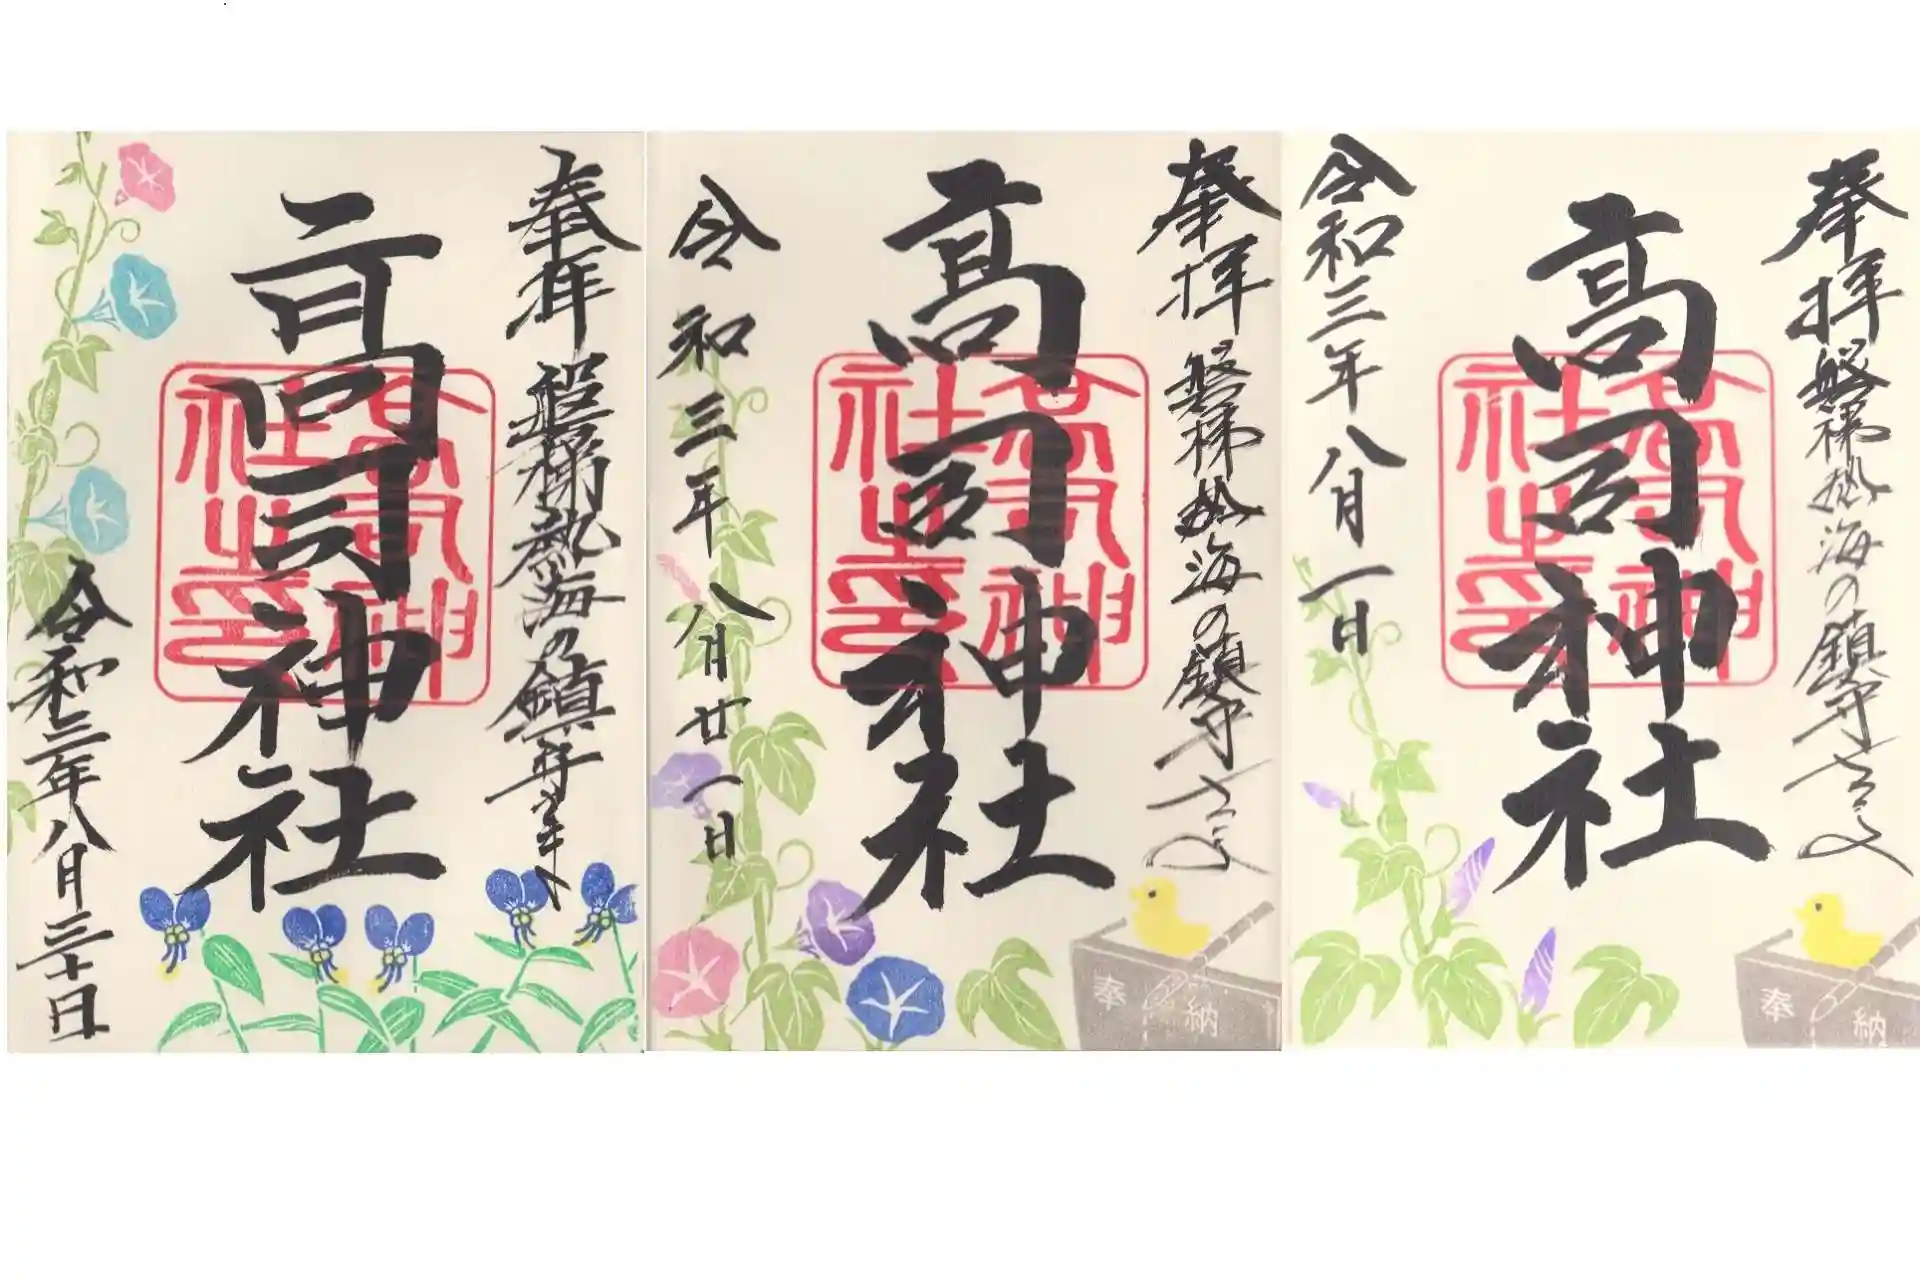 奉拜 磐梯熱海の鎮守さま
高司神社
高司神社之印
令和三年八月一日
奉納
奉拜 磐梯熱海の鎮守さま
高司神社
高司神社之印
令和三年八月廿一日
奉納
奉拜 磐梯熱海の鎮守さま
高司神社
高司神社之印
令和三年八月三十日